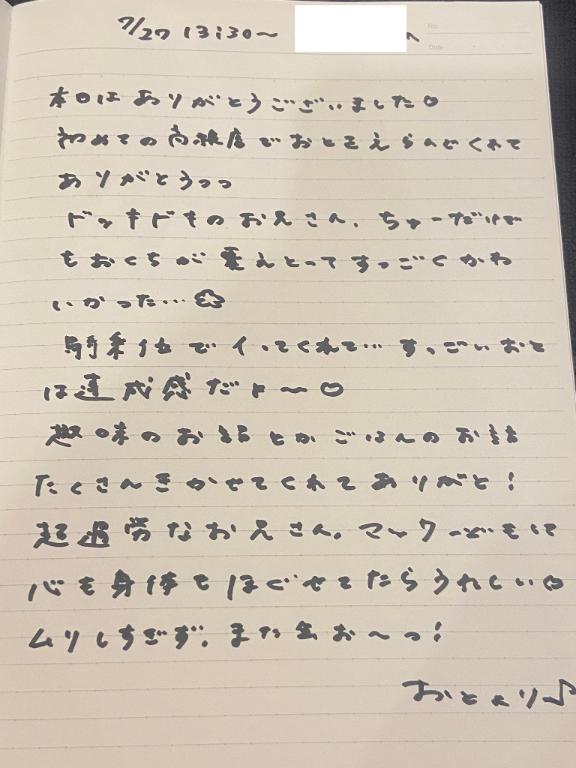 7/27 13:30〜 へ
本日はありがとうございました♡
初めての高級店でおとをえらんでくれて
ありがとうっっ
ドッキドキのお兄さん、ちゅーだけで
もおくちが震えとってすっごくかわ
いかった…
騎乗位でイってくれて…すっごいおと
は達成感だよ〜♡
趣味のお話とかごはんのお話
たくさんきかせてくれてありがと!
超過労なお兄さん。マックーどもして
心も身体もほぐせてたらうれしい♡
ムリしすぎず、また会お〜っ!
おとより♪